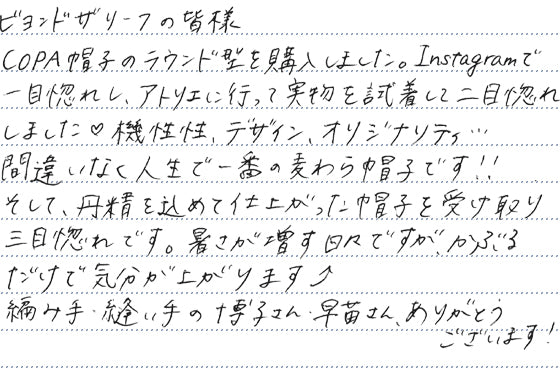 ビヨンドザリーフの皆様
COPA帽子のラウンド型を購入しました。Instagramで
一目惚れし、アトリエに行って実物を試着して二目惚れ
しました♡機性性、デザイン、オリジナリティ…
間違いなく人生で一番の麦わら帽子です!!
そして、丹精を込めて仕上がった帽子を受け取り
三目惚れです。暑さが増す日々ですが、かぶる
だけで気分が上がります⤴
編み手・縫い手の博子さん・早苗さん、ありがとう
ございます!